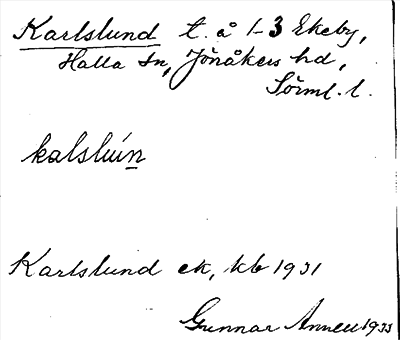 Karlslund t. å 1-3 Ekeby,
Halla sn, Jönåkers hd,
Sörml. l.
kalslún
Karlslund ek, kb 1931
Gunnar Annell 1933